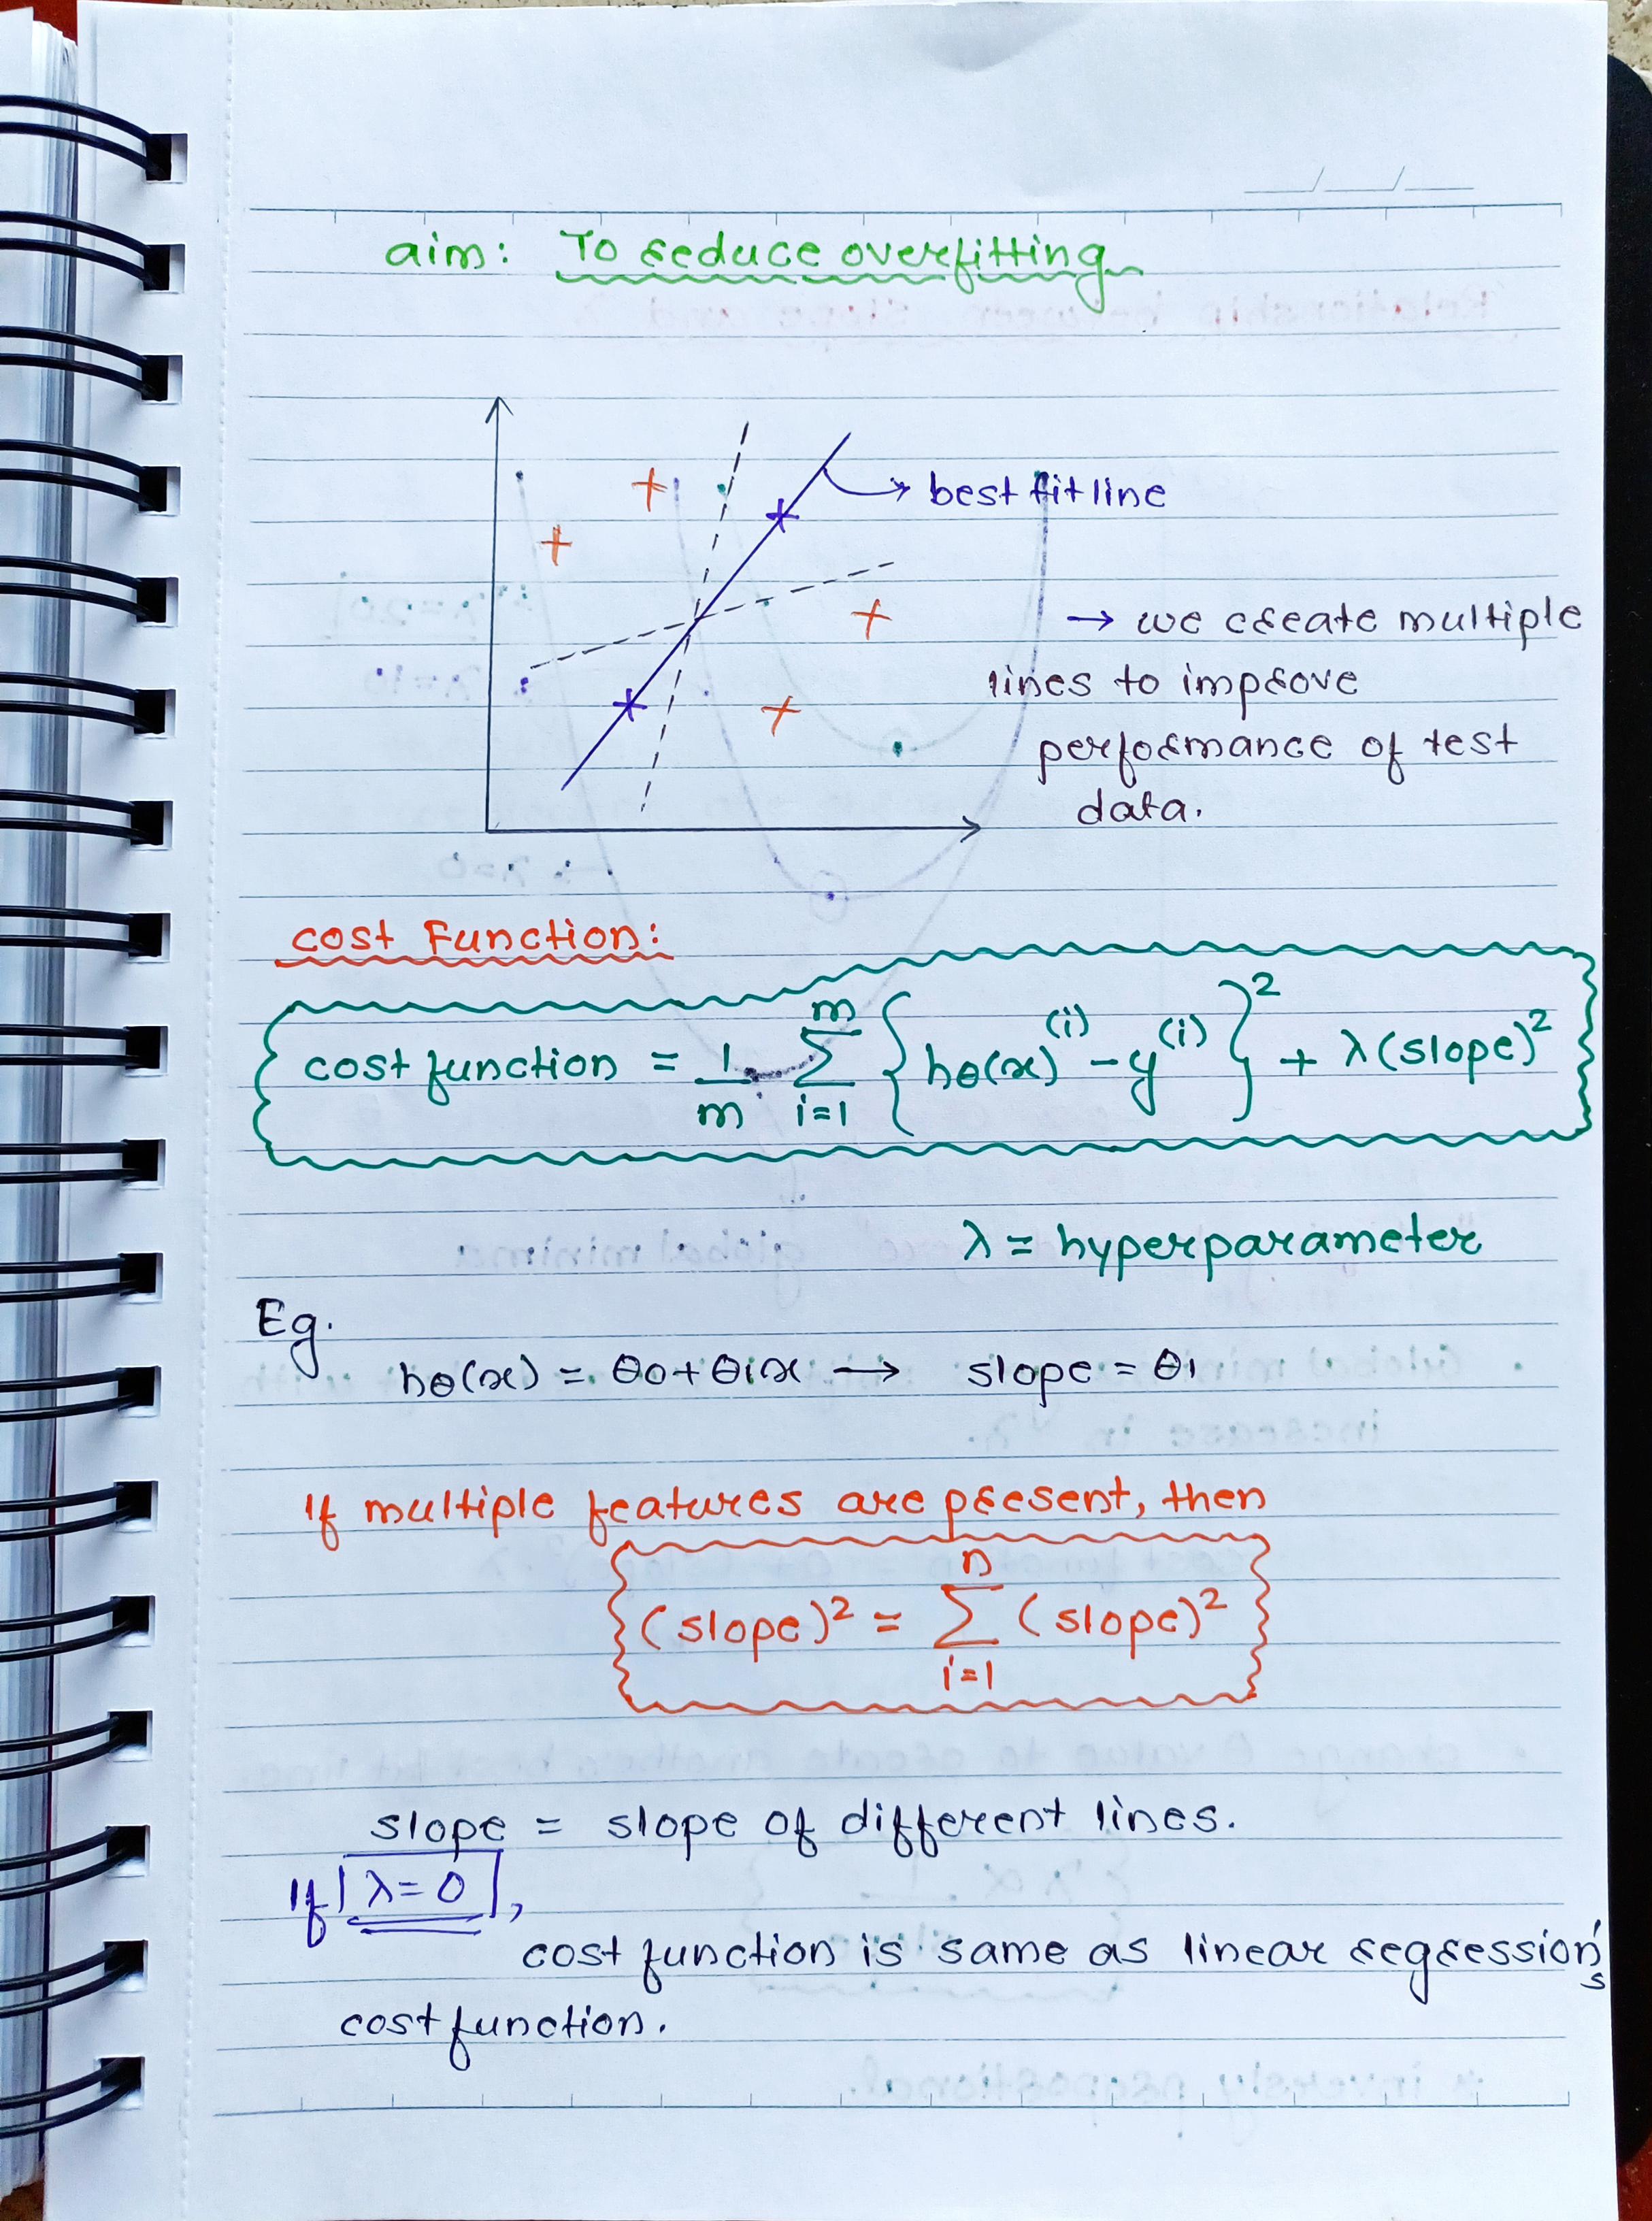 aim: To reduce overfitting
best fit line
→ we create multiple
lines to improve
performance of test
data.
cost Function:
cost function = 1/m m∑i=1 {hθ(x)^(i) - y^(i)}^2 + λ(slope)^2
λ = hyperparameter
Eg.
hθ(x) = θ0 + θ1x → slope = θ1
If multiple features are present, then
(slope)^2 = n∑i=1 (slope)^2
slope = slope of different lines.
If λ=0,
cost function is same as linear regression's
cost function.